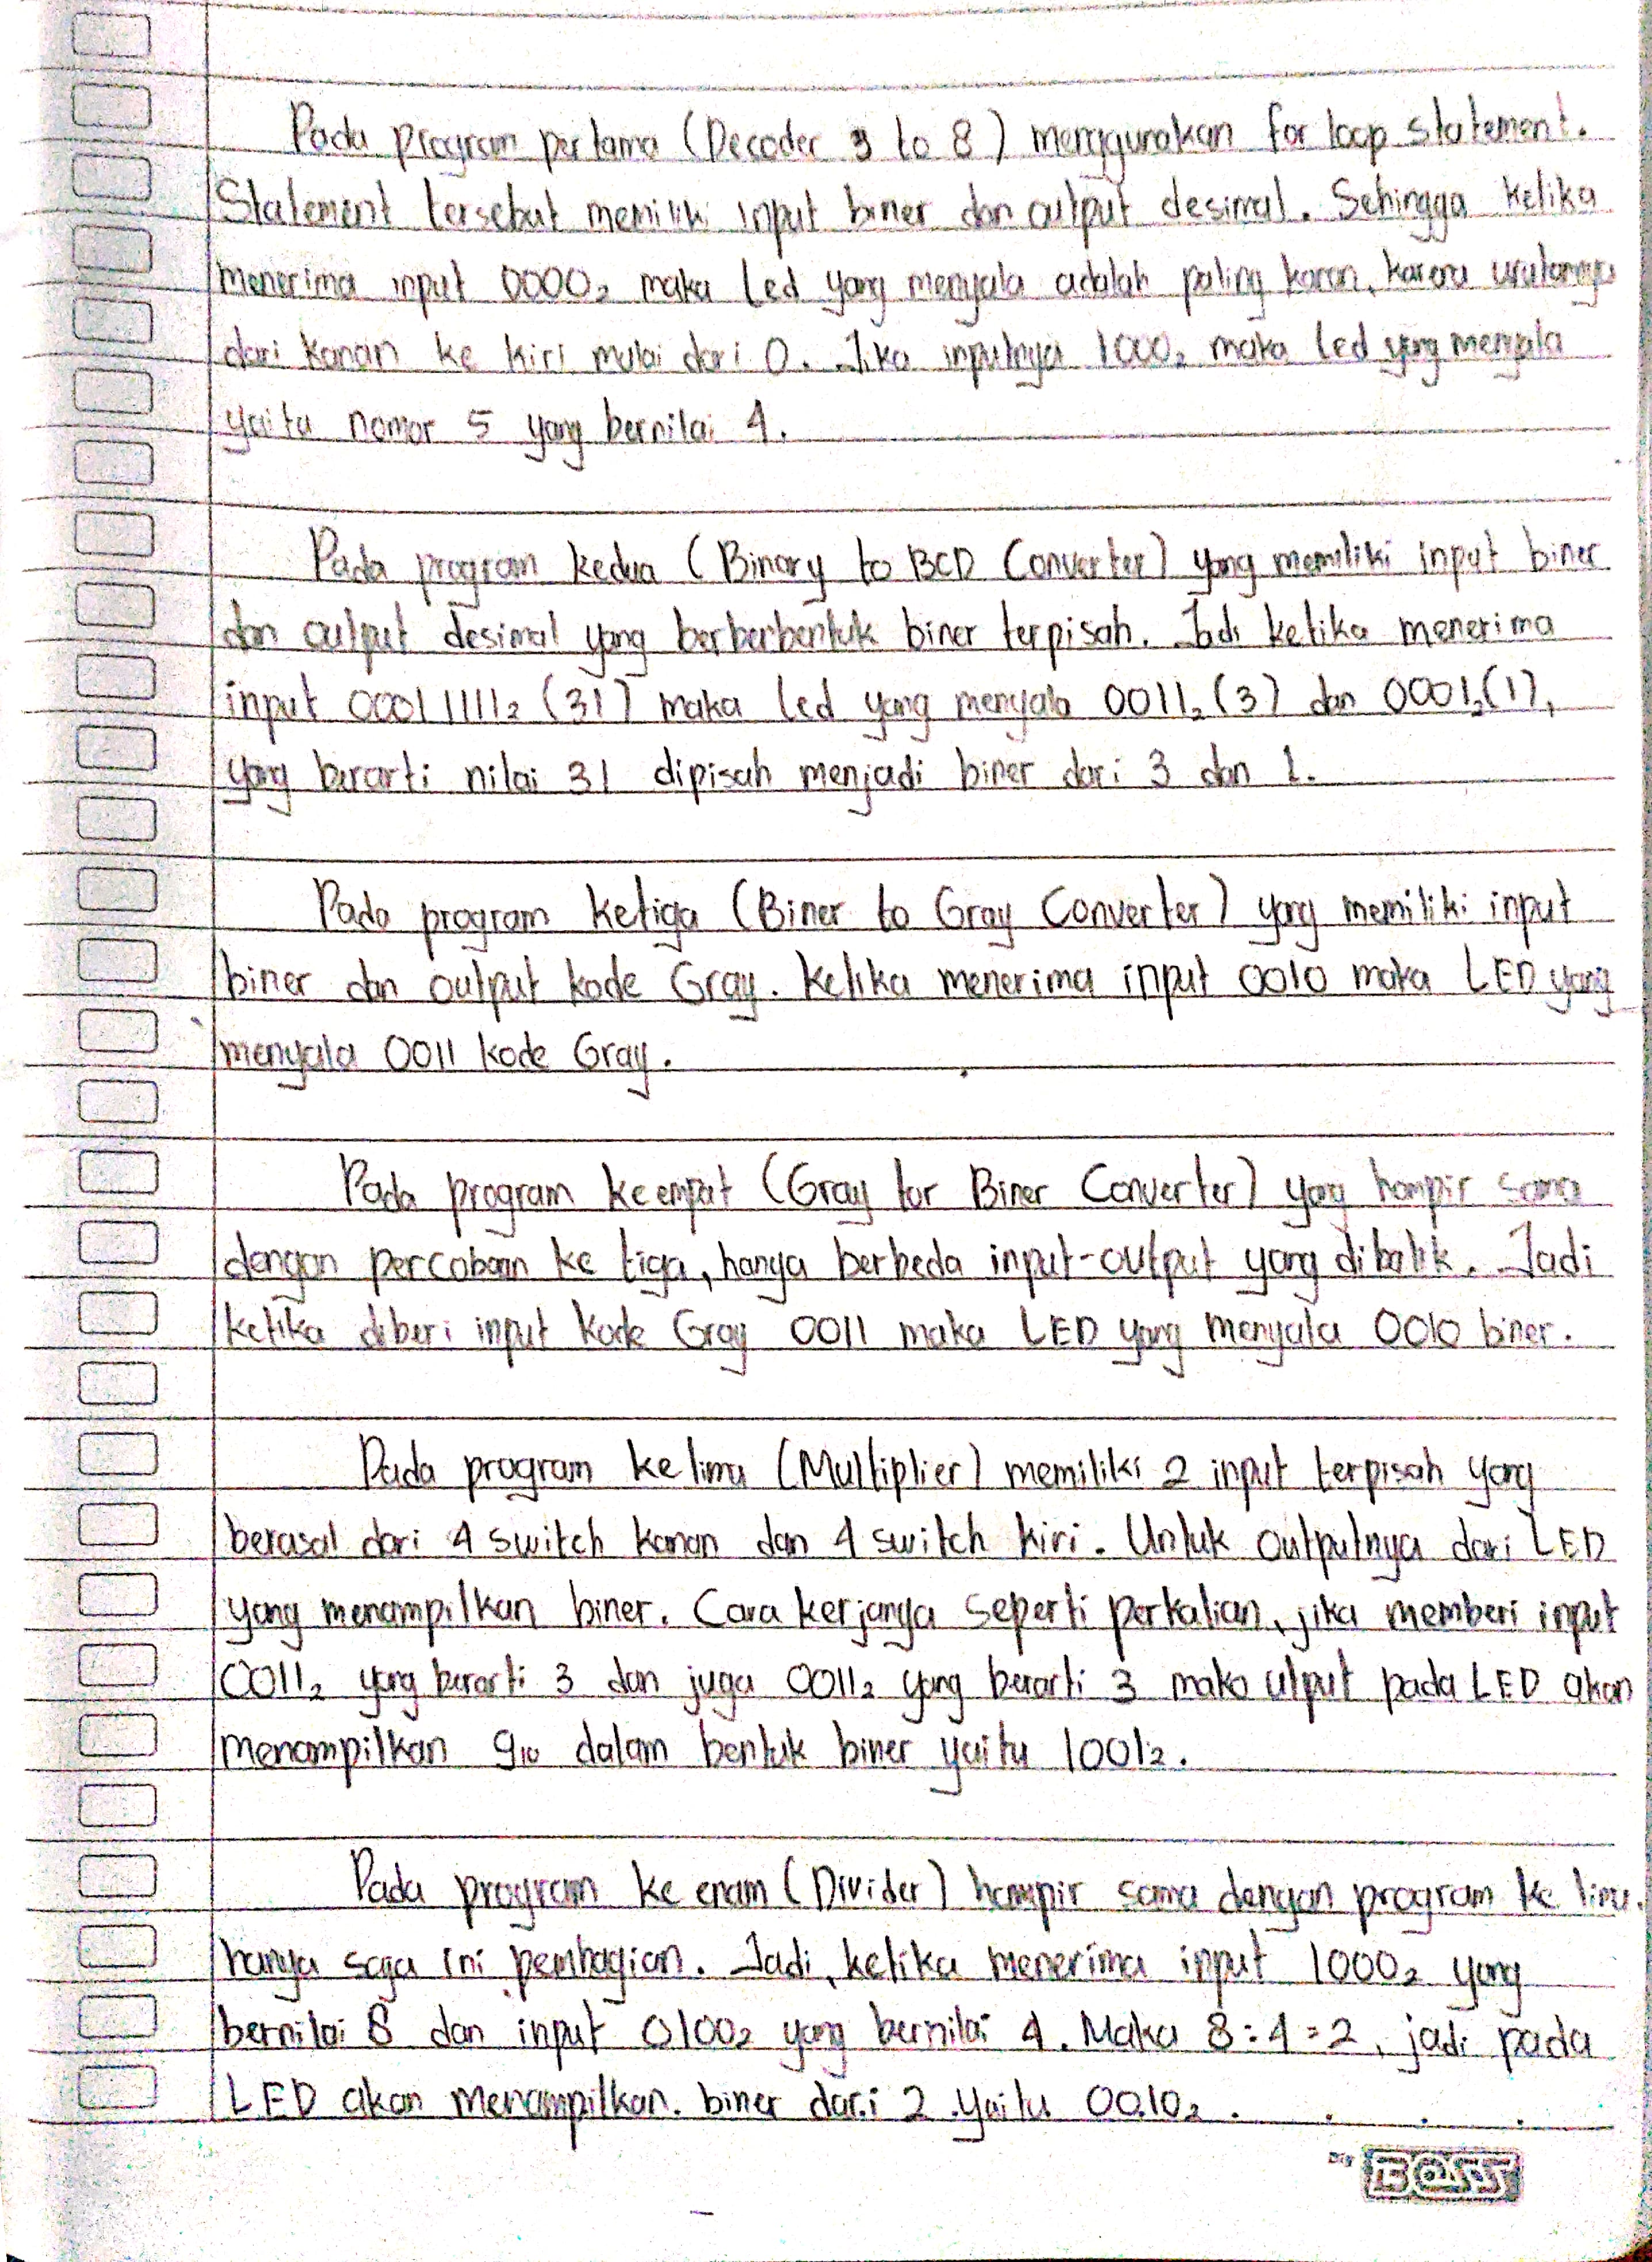 Pada program pertama (Decoder 3 to 8) menggunakan for loop statement.
Statement tersebut memiliki input biner dan output desimal. Sehingga ketika
menerima input 0000₂ maka Led yang menyala adalah paling kanan, karena urutannya
dari kanan ke kiri mulai dari 0. Jika inputnya 1000₂ maka led yang menyala
yaitu nomor 5 yang bernilai 4.
Pada program kedua (Binary to BCD Converter) yang memiliki input biner
dan output desimal yang berberbentuk biner terpisah. Jadi ketika menerima
input 00011111₂ (31) maka led yang menyala 0011₂ (3) dan 0001₂ (1),
yang berarti nilai 31 dipisah menjadi biner dari 3 dan 1.
Pada program ketiga (Biner to Gray Converter) yang memiliki input
biner dan output kode Gray. Ketika menerima input 0010 maka LED yang
menyala 0011 kode Gray.
Pada program keempat (Gray tor Biner Converter) yang hampir sama
dengan percobaan ke tiga, hanya berbeda input-output yang dibalik. Jadi
ketika diberi input kode Gray 0011 maka LED yang menyala 0010 biner.
Pada program kelima (Multiplier) memiliki 2 input terpisah yang
berasal dari 4 switch kanan dan 4 switch kiri. Untuk outputnya dari LED
yang menampilkan biner. Cara kerjanya seperti perkalian, jika memberi input
0011₂ yang berarti 3 dan juga 0011₂ yang berarti 3 maka utput pada LED akan
menampilkan 9₁₀ dalam bentuk biner yaitu 1001₂.
Pada program ke enam (Divider) hampir sama dengan program ke lima.
hanya saja ini pembagian. Jadi, ketika menerima input 1000₂ yang
bernilai 8 dan input 0100₂ yang bernilai 4. Maka 8 : 4 = 2, jadi pada
LED akan menampilkan biner dari 2 yaitu 0010₂.
BOSS